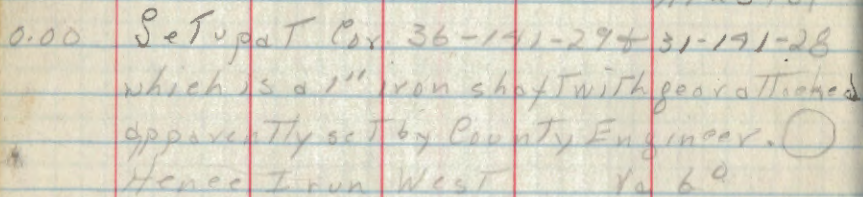 0.00 Setup at Cor. 36-141-29 & 31-141-28
which is a 1" iron shaft with gear attached
apparently set by County Engineer.
Hence I run West Va 6°